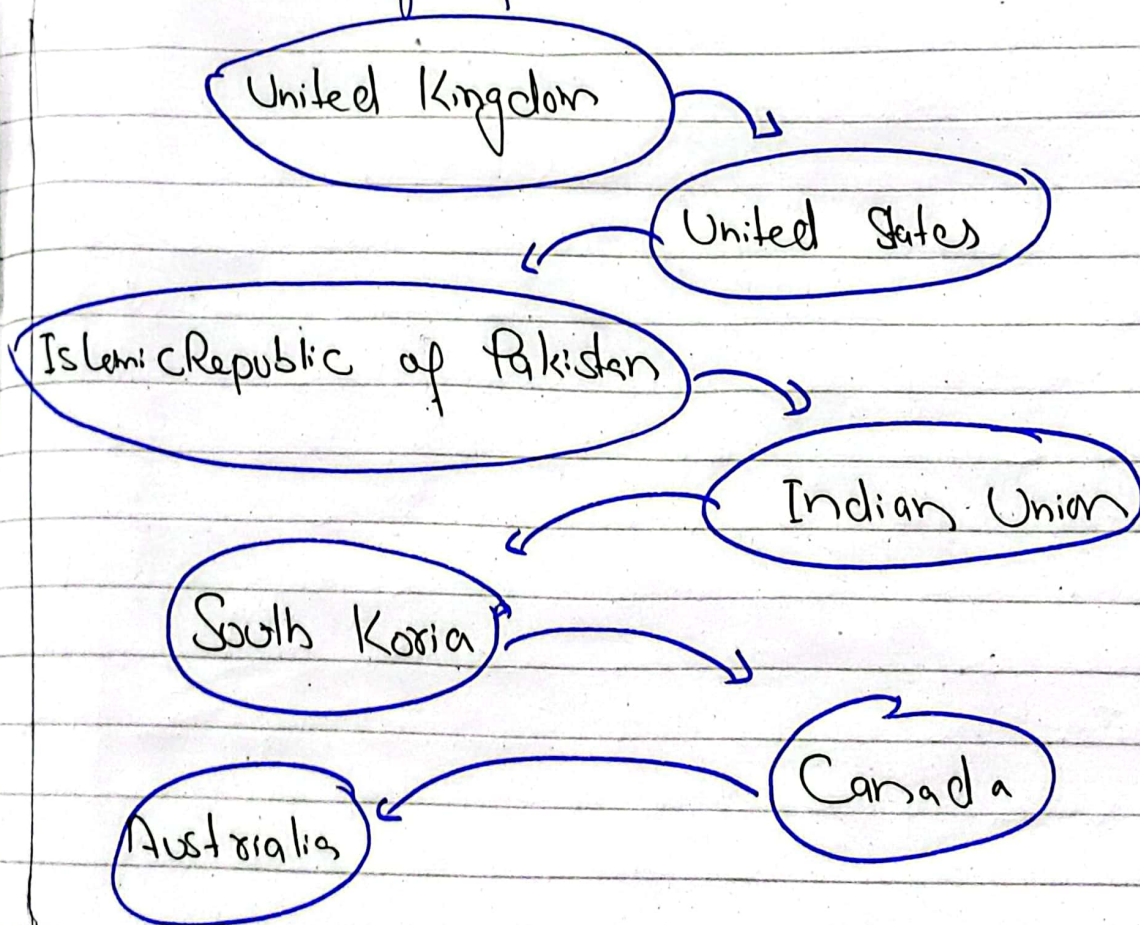 United Kingdom
United States
Islamic Republic of Pakistan
Indian Union
South Koria
Canada
Austrialia